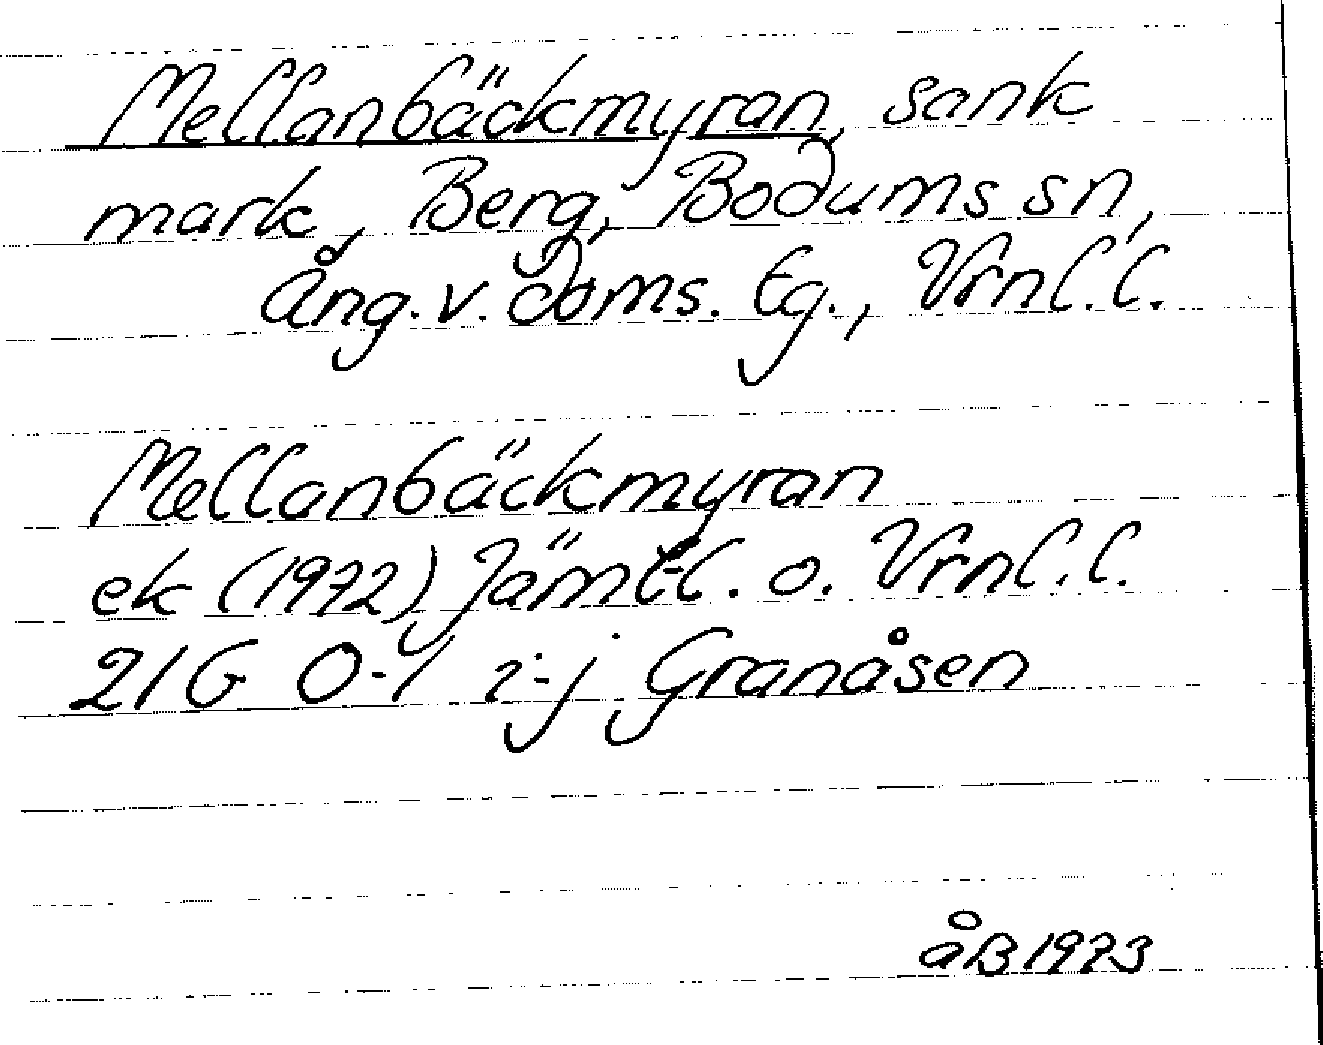 Mellanbäckmyran, sank
mark, Berg, Bodums sn,
Ång. v. doms. tg., Vrnl. l.
Mellanbäckmyran
ek (1972) Jämtl. o. Vrnl. l.
21G 0-1 i-j Granåsen
åB 1973